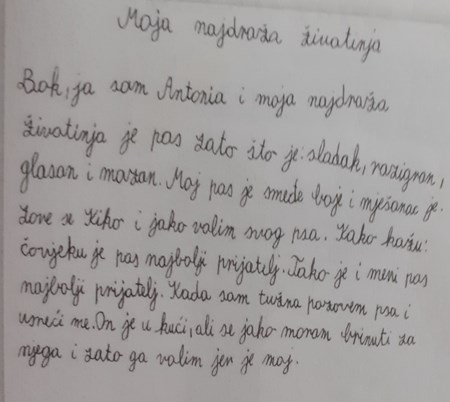 Moja najdraža životinja
Bok, ja sam Antonia i moja najdraža
životinja je pas zato što je: sladak, razigran,
glasan i mazan. Moj pas je smeđe boje i mješanac je.
Zove se Kiko i jako volim svog psa. Kako kažu:
čovjeku je pas najbolji prijatelj. Tako je i meni pas
najbolji prijatelj. Kada sam tužna pozovem psa i
usreći me. On je u kući, ali se jako moram brinuti za
njega i zato ga volim jer je moj.